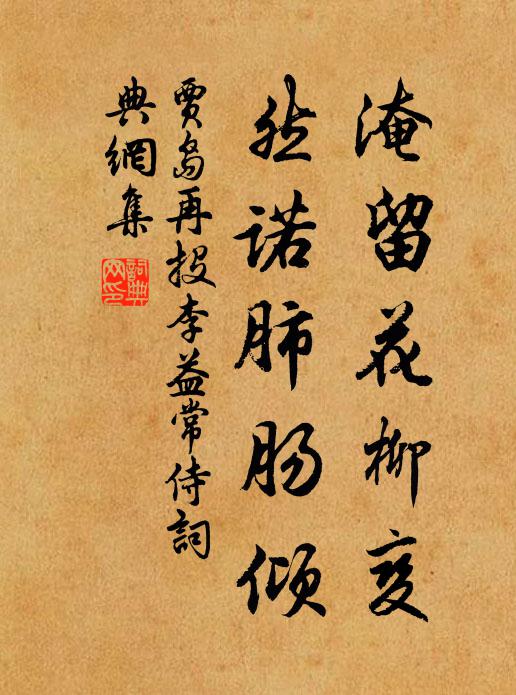 淹留花柳变
然诺肺肠倾
賈島再投李益常侍詞
典網集
詞典网印